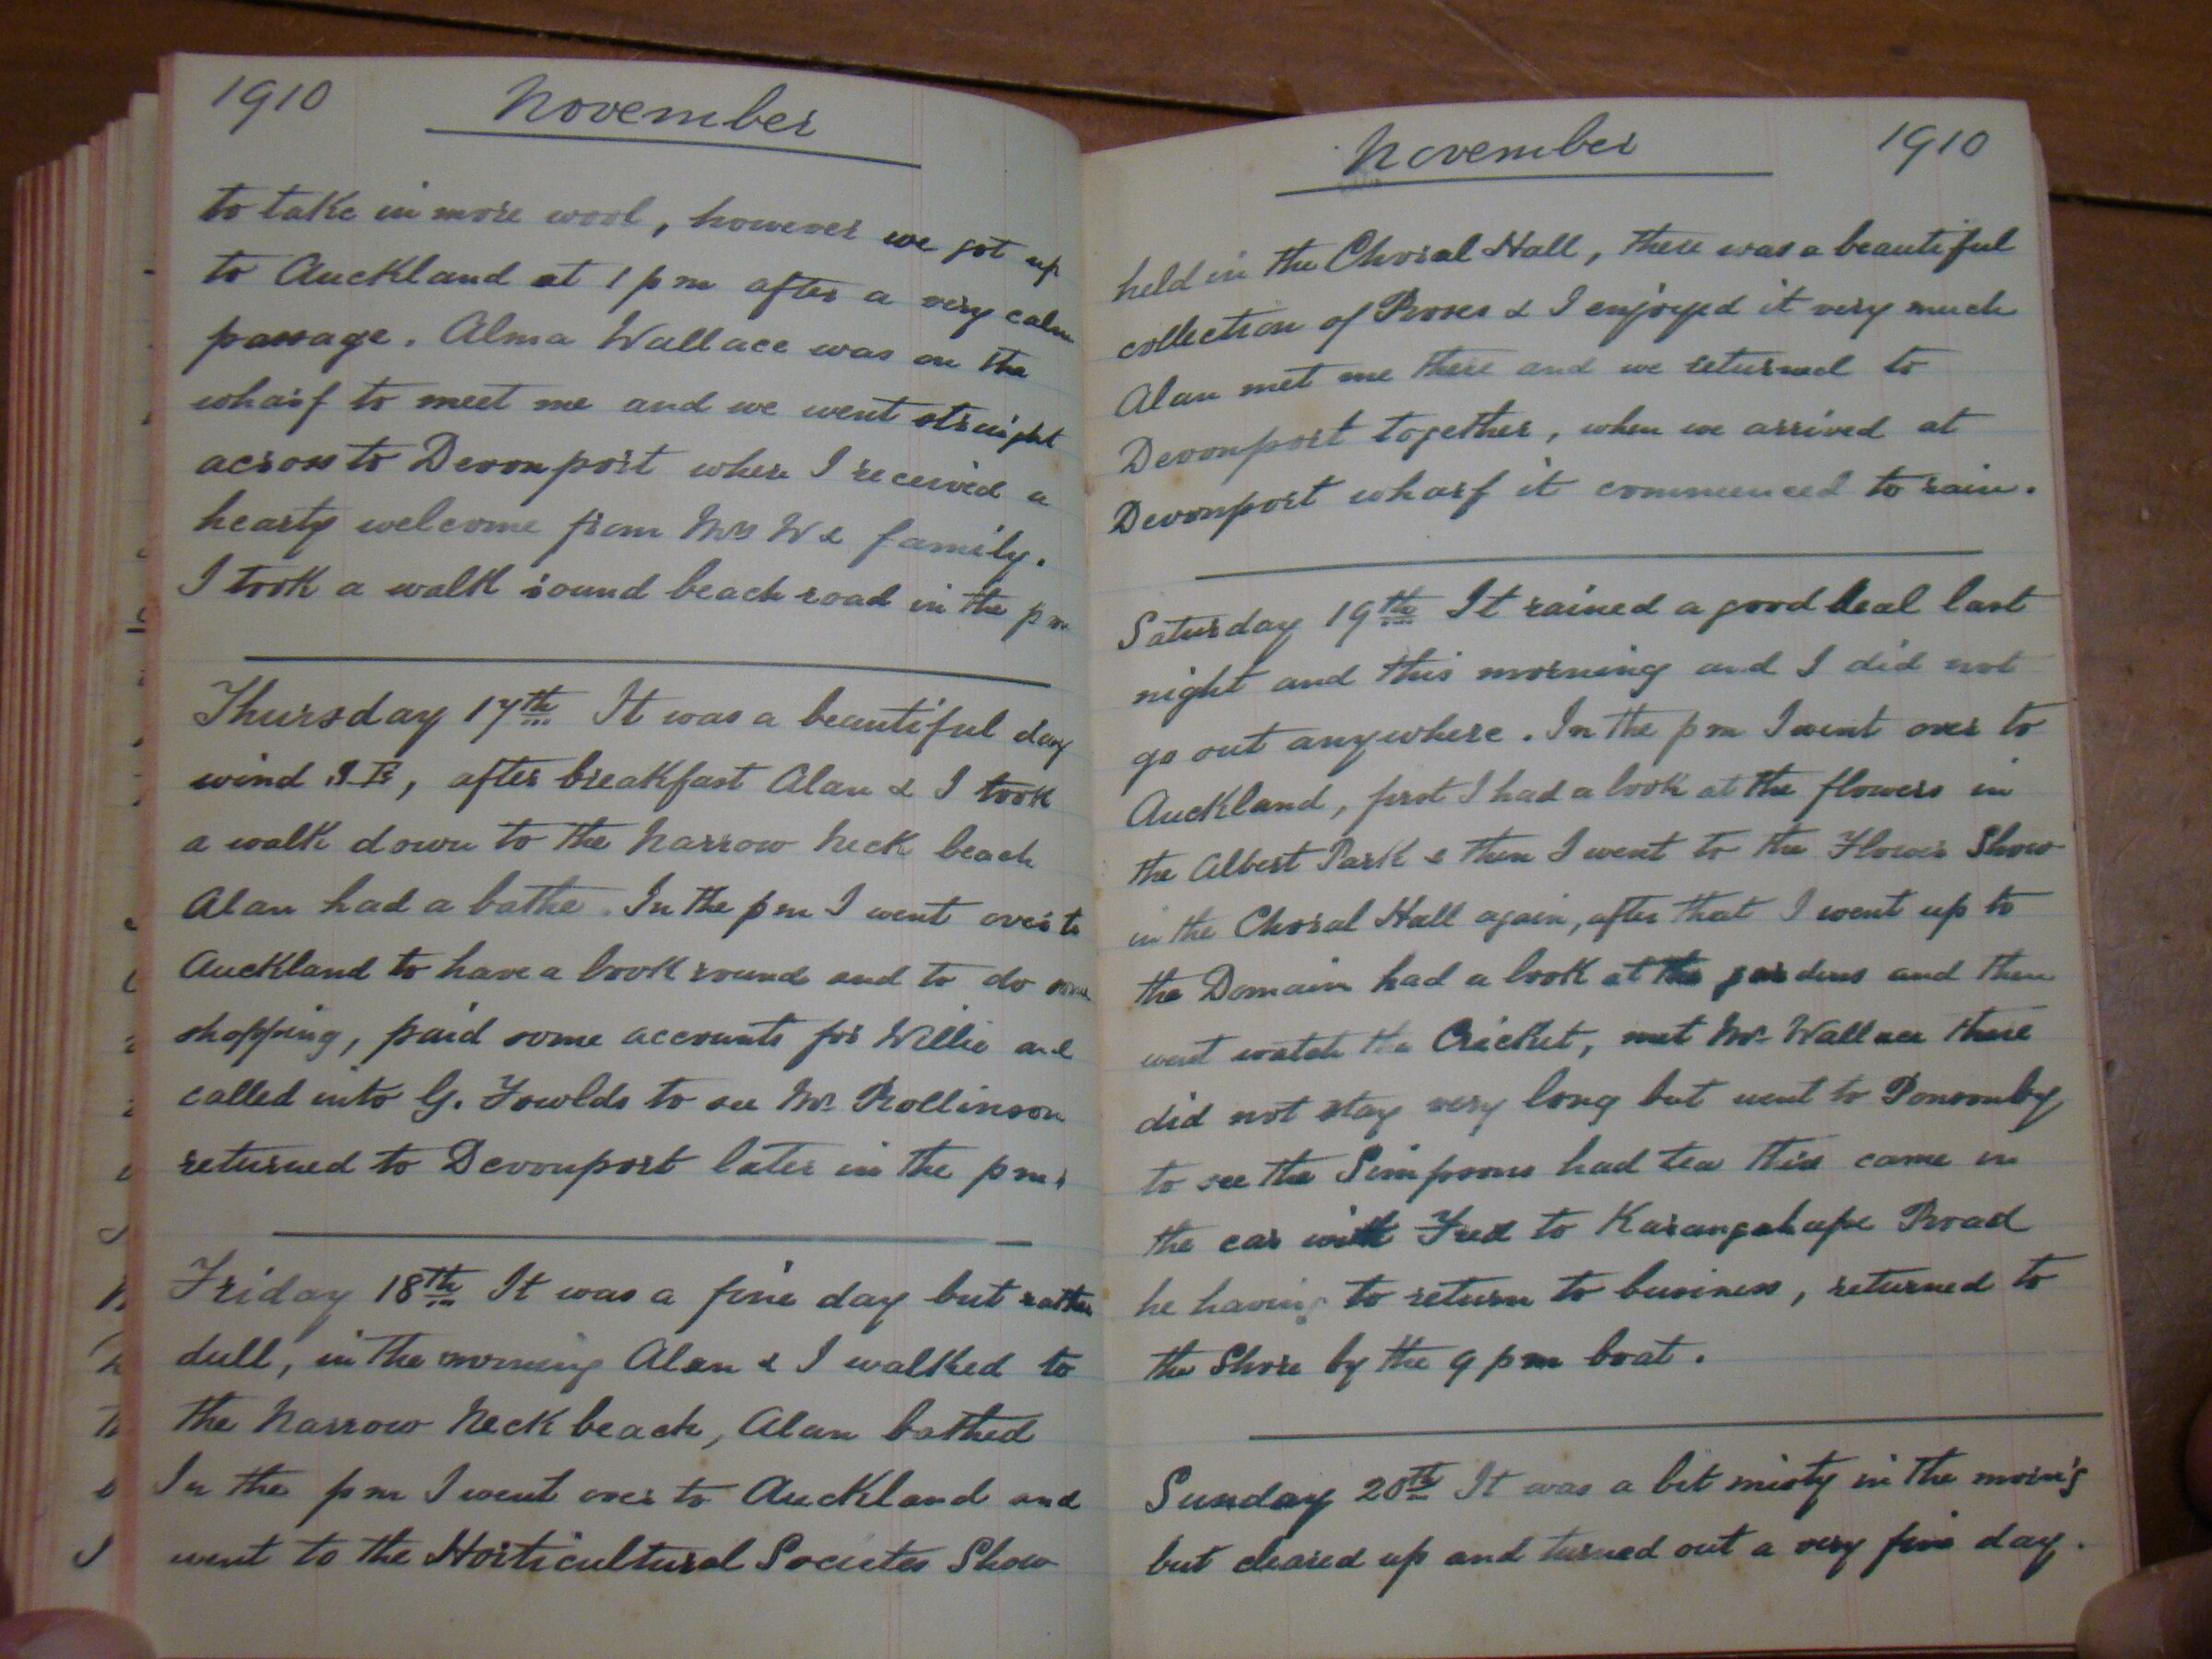 1910 November
to take in more wool, however we got up
to Auckland at 1 pm after a very calm
passage. Alma Wallace was on the
wharf to meet me and we went straight
across to Devonport where I received a
hearty welcome from Mrs W & family.
I took a walk round beach road in the pm
Thursday 17th It was a beautiful day
wind , after breakfast Alan & I took
a walk down to the Narrow Neck beach
Alan had a bathe. In the pm I went over to
Auckland to have a look round and to do some
shopping, paid some accounts for Willie and
called into G. Fowlds to see Mr Rollinson
returned to Devonport later in the pm.
Friday 18th It was a fine day but rather
dull, in the morning Alan & I walked to
the Narrow Neck beach, Alan bathed
In the pm I went over to Auckland and
went to the Horticultural Societes Show
November 1910
held in the Choral Hall, there was a beautiful
collection of Roses & I enjoyed it very much
Alan met me there and we returned to
Devonport together, when we arrived at
Devonport wharf it commenced to rain.
Saturday 19th It rained a good deal last
night and this morning and I did not
go out anywhere. In the pm I went over to
Auckland, first I had a look at the flowers in
the Albert Park & then I went to the Flower Show
in the Choral Hall again, after that I went up to
the Domain had a look at the gardens and then
went watch the Cricket, met Mr Wallace there
did not stay very long but went to Ponsonby
to see the Simpsons had tea there came in
the car with Fred to Karangahape Road
he having to return to business, returned to
the Shore by the 9 pm boat.
Sunday 20th It was a bit misty in the morn'g
but cleared up and turned out a very fine day.